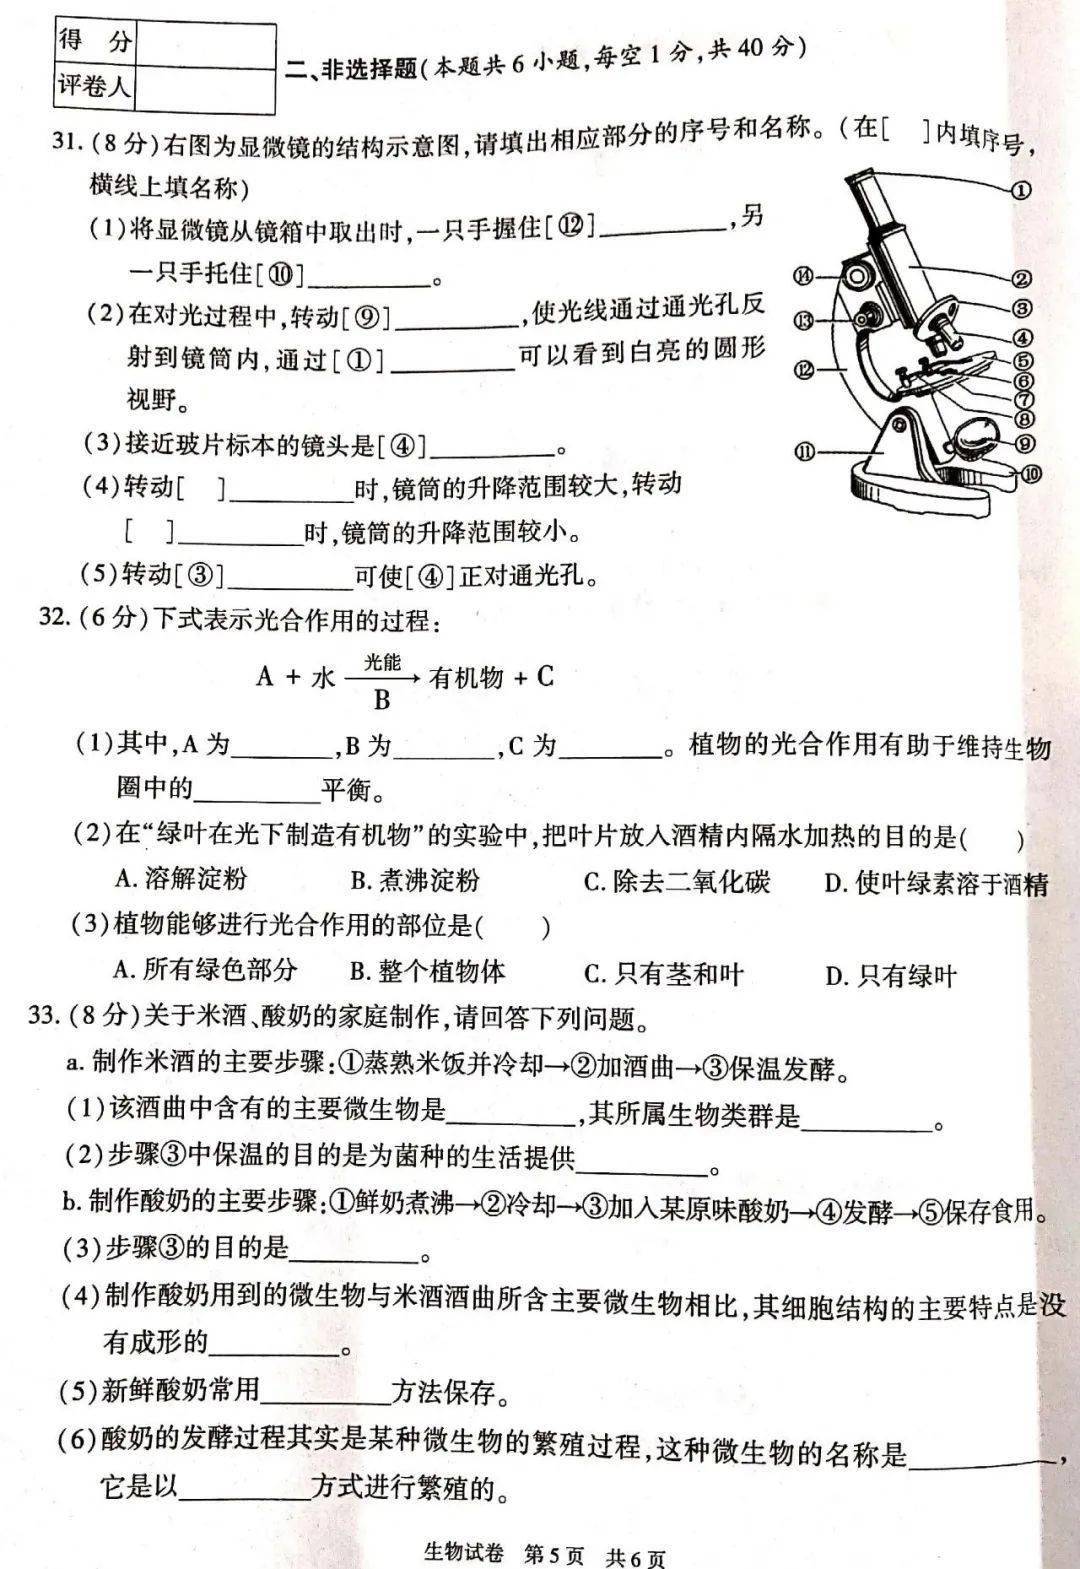 得 分
评卷人
二、非选择题(本题共6小题,每空1分,共40分)
31.(8分)右图为显微镜的结构示意图,请填出相应部分的序号和名称。(在[ ]内填序号,
横线上填名称)
(1)将显微镜从镜箱中取出时,一只手握住[⑫]________,另
一只手托住[⑩]________。
(2)在对光过程中,转动[⑨]________,使光线通过通光孔反
射到镜筒内,通过[①]________可以看到白亮的圆形
视野。
(3)接近玻片标本的镜头是[④]________。
(4)转动[ ]________时,镜筒的升降范围较大,转动
[ ]________时,镜筒的升降范围较小。
(5)转动[③]________可使[④]正对通光孔。
①
②
③
④
⑤
⑥
⑦
⑧
⑨
⑩
⑪
⑫
⑬
⑭
32.(6分)下式表示光合作用的过程:
A + 水 光能 → 有机物 + C
B
(1)其中,A为________,B为________,C为________。植物的光合作用有助于维持生物
圈中的________平衡。
(2)在“绿叶在光下制造有机物”的实验中,把叶片放入酒精内隔水加热的目的是( )
A. 溶解淀粉 B. 煮沸淀粉 C. 除去二氧化碳 D. 使叶绿素溶于酒精
(3)植物能够进行光合作用的部位是( )
A. 所有绿色部分 B. 整个植物体 C. 只有茎和叶 D. 只有绿叶
33.(8分)关于米酒、酸奶的家庭制作,请回答下列问题。
a. 制作米酒的主要步骤:①蒸熟米饭并冷却→②加酒曲→③保温发酵。
(1)该酒曲中含有的主要微生物是________,其所属生物类群是________。
(2)步骤③中保温的目的是为菌种的生活提供________。
b. 制作酸奶的主要步骤:①鲜奶煮沸→②冷却→③加入某原味酸奶→④发酵→⑤保存食用。
(3)步骤③的目的是________。
(4)制作酸奶用到的微生物与米酒酒曲所含主要微生物相比,其细胞结构的主要特点是没
有成形的________。
(5)新鲜酸奶常用________方法保存。
(6)酸奶的发酵过程其实是某种微生物的繁殖过程,这种微生物的名称是________,
它是以________方式进行繁殖的。
生物试卷 第5页 共6页